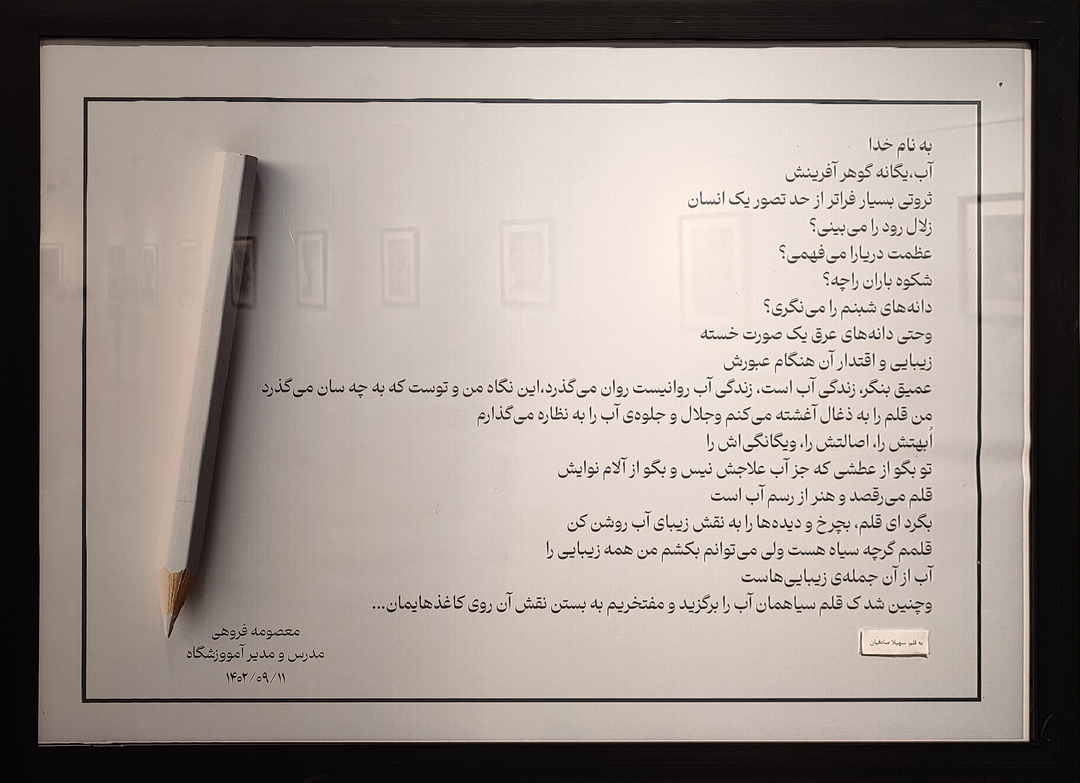 به نام خدا
آب،یگانه گوهر آفرینش
ثروتی بسیار فراتر از حد تصور یک انسان
زلال رود را می‌بینی؟
عظمت دریارا می‌فهمی؟
شکوه باران راچه؟
دانه‌های شبنم را می‌نگری؟
وحتی دانه‌های عرق یک صورت خسته
زیبایی و اقتدار آن هنگام عبورش
عمیق بنگر، زندگی آب است، زندگی آب روانیست روان می‌گذرد،این نگاه من و توست که به چه سان می‌گذرد
من قلم را به ذغال آغشته می‌کنم وجلال و جلوه‌ی آب را به نظاره می‌گذارم
اُبهتش را، اصالتش را، ویگانگی‌اش را
تو بگو از عطشی که جز آب علاجش نیس و بگو از آلام نوایش
قلم می‌رقصد و هنر از رسم آب است
بگرد ای قلم، بچرخ و دیده‌ها را به نقش زیبای آب روشن کن
قلمم گرچه سیاه هست ولی می‌توانم بکشم من همه زیبایی را
آب از آن جمله‌ی زیبایی‌هاست
وچنین شد ک قلم سیاهمان آب را برگزید و مفتخریم به بستن نقش آن روی کاغذهایمان...
به قلم: سهیلا صادقیان
معصومه فروهی
مدرس و مدیر آمووزشگاه
۱۴۰۲/۰۹/۱۱